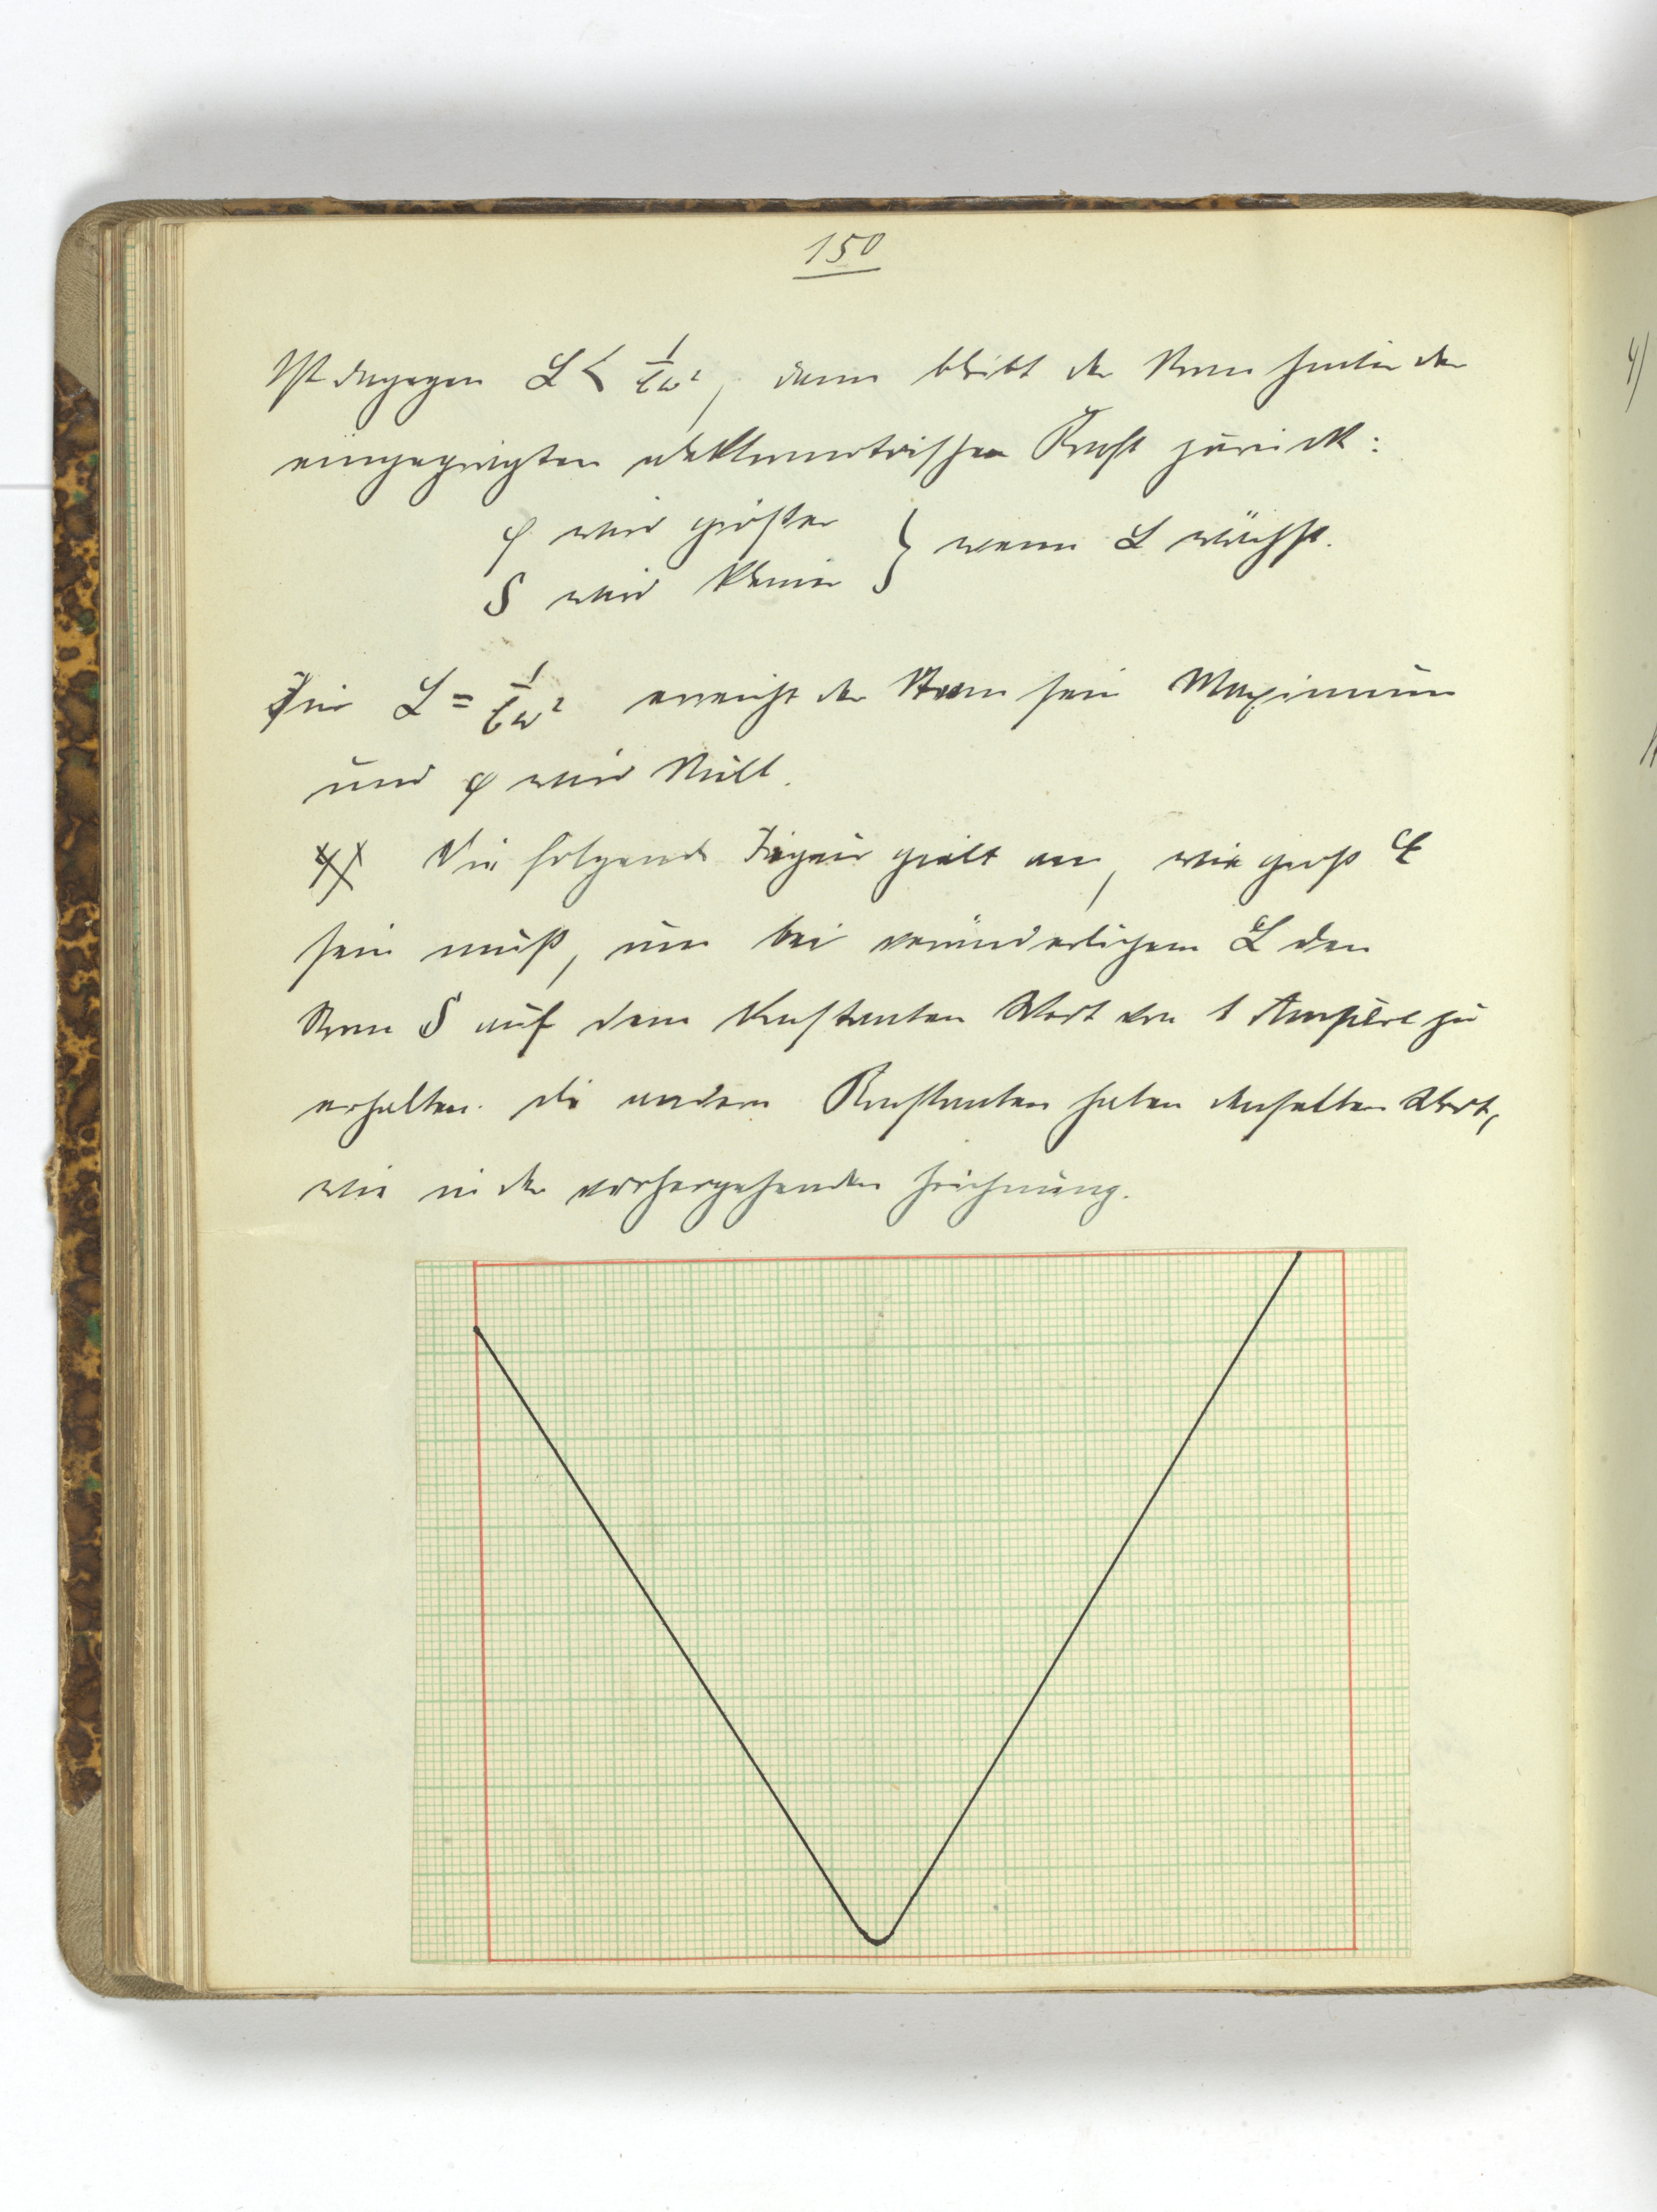 150
Ist dagegen L < 1/Cω², dann bleibt der Strom hinter der
eingeprägten elektromotrischen Kraft zurück:
φ wird größer
J wird kleiner } wenn L wächst.
Für L = 1/Cω² erreicht der Strom sein Maximum
und φ wird Null.
4) Die folgende Figur gibt an, wie groß E
sein muß, um bei veränderlichem L den
Strom J auf dem konstanten Wert von 1 Ampère zu
erhalten. die andern Konstanten haben denselben Wert,
wie in der vorhergehenden Zeichnung.
4)